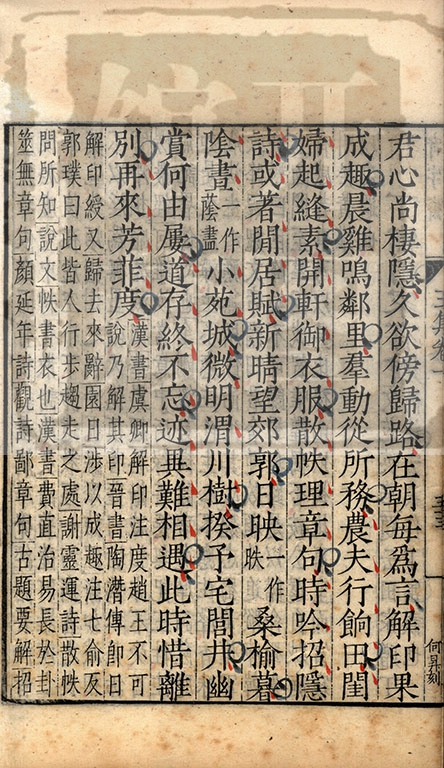 君心尚棲隱久欲傍歸路在朝每為言解印果
成趣晨雞鳴鄰里羣動從所務農夫行餉田閨
婦起縫素開軒御衣服散帙理章句時吟招隱
詩或著閒居賦新晴望郊郭日映一作昳桑榆暮
陰晝一作蔭盡小苑城微明渭川樹揆予宅閭井幽
賞何由屢道存終不忘迹異難相遇此時惜離
別再來芳菲度漢書虞卿解印注度趙王不可
說乃解其印晉書陶潛傳卽日
解印綬又歸去來辭園日涉以成趣注七俞反
郭璞曰此皆人行步趨走之處謝靈運詩散帙
問所知說文帙書衣也漢書費直治易長於卦
筮無章句顏延年詩觀詩鄙章句古題要解招